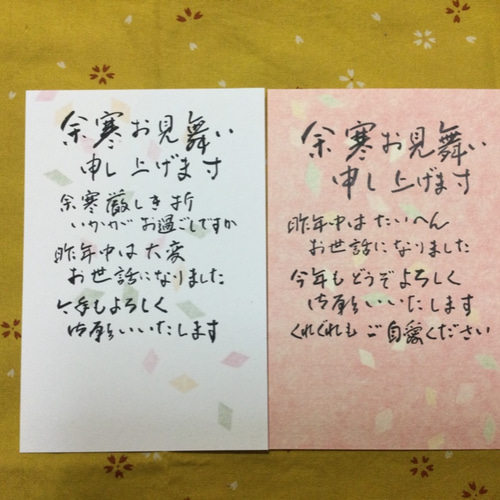 余寒お見舞い
申し上げます
余寒厳しき折
いかがお過ごしですか
昨年中は大変
お世話になりました
今年もよろしく
御願いいたします
余寒お見舞い
申し上げます
昨年中はたいへん
お世話になりました
今年もどうぞよろしく
御願いいたします
くれぐれもご自愛ください